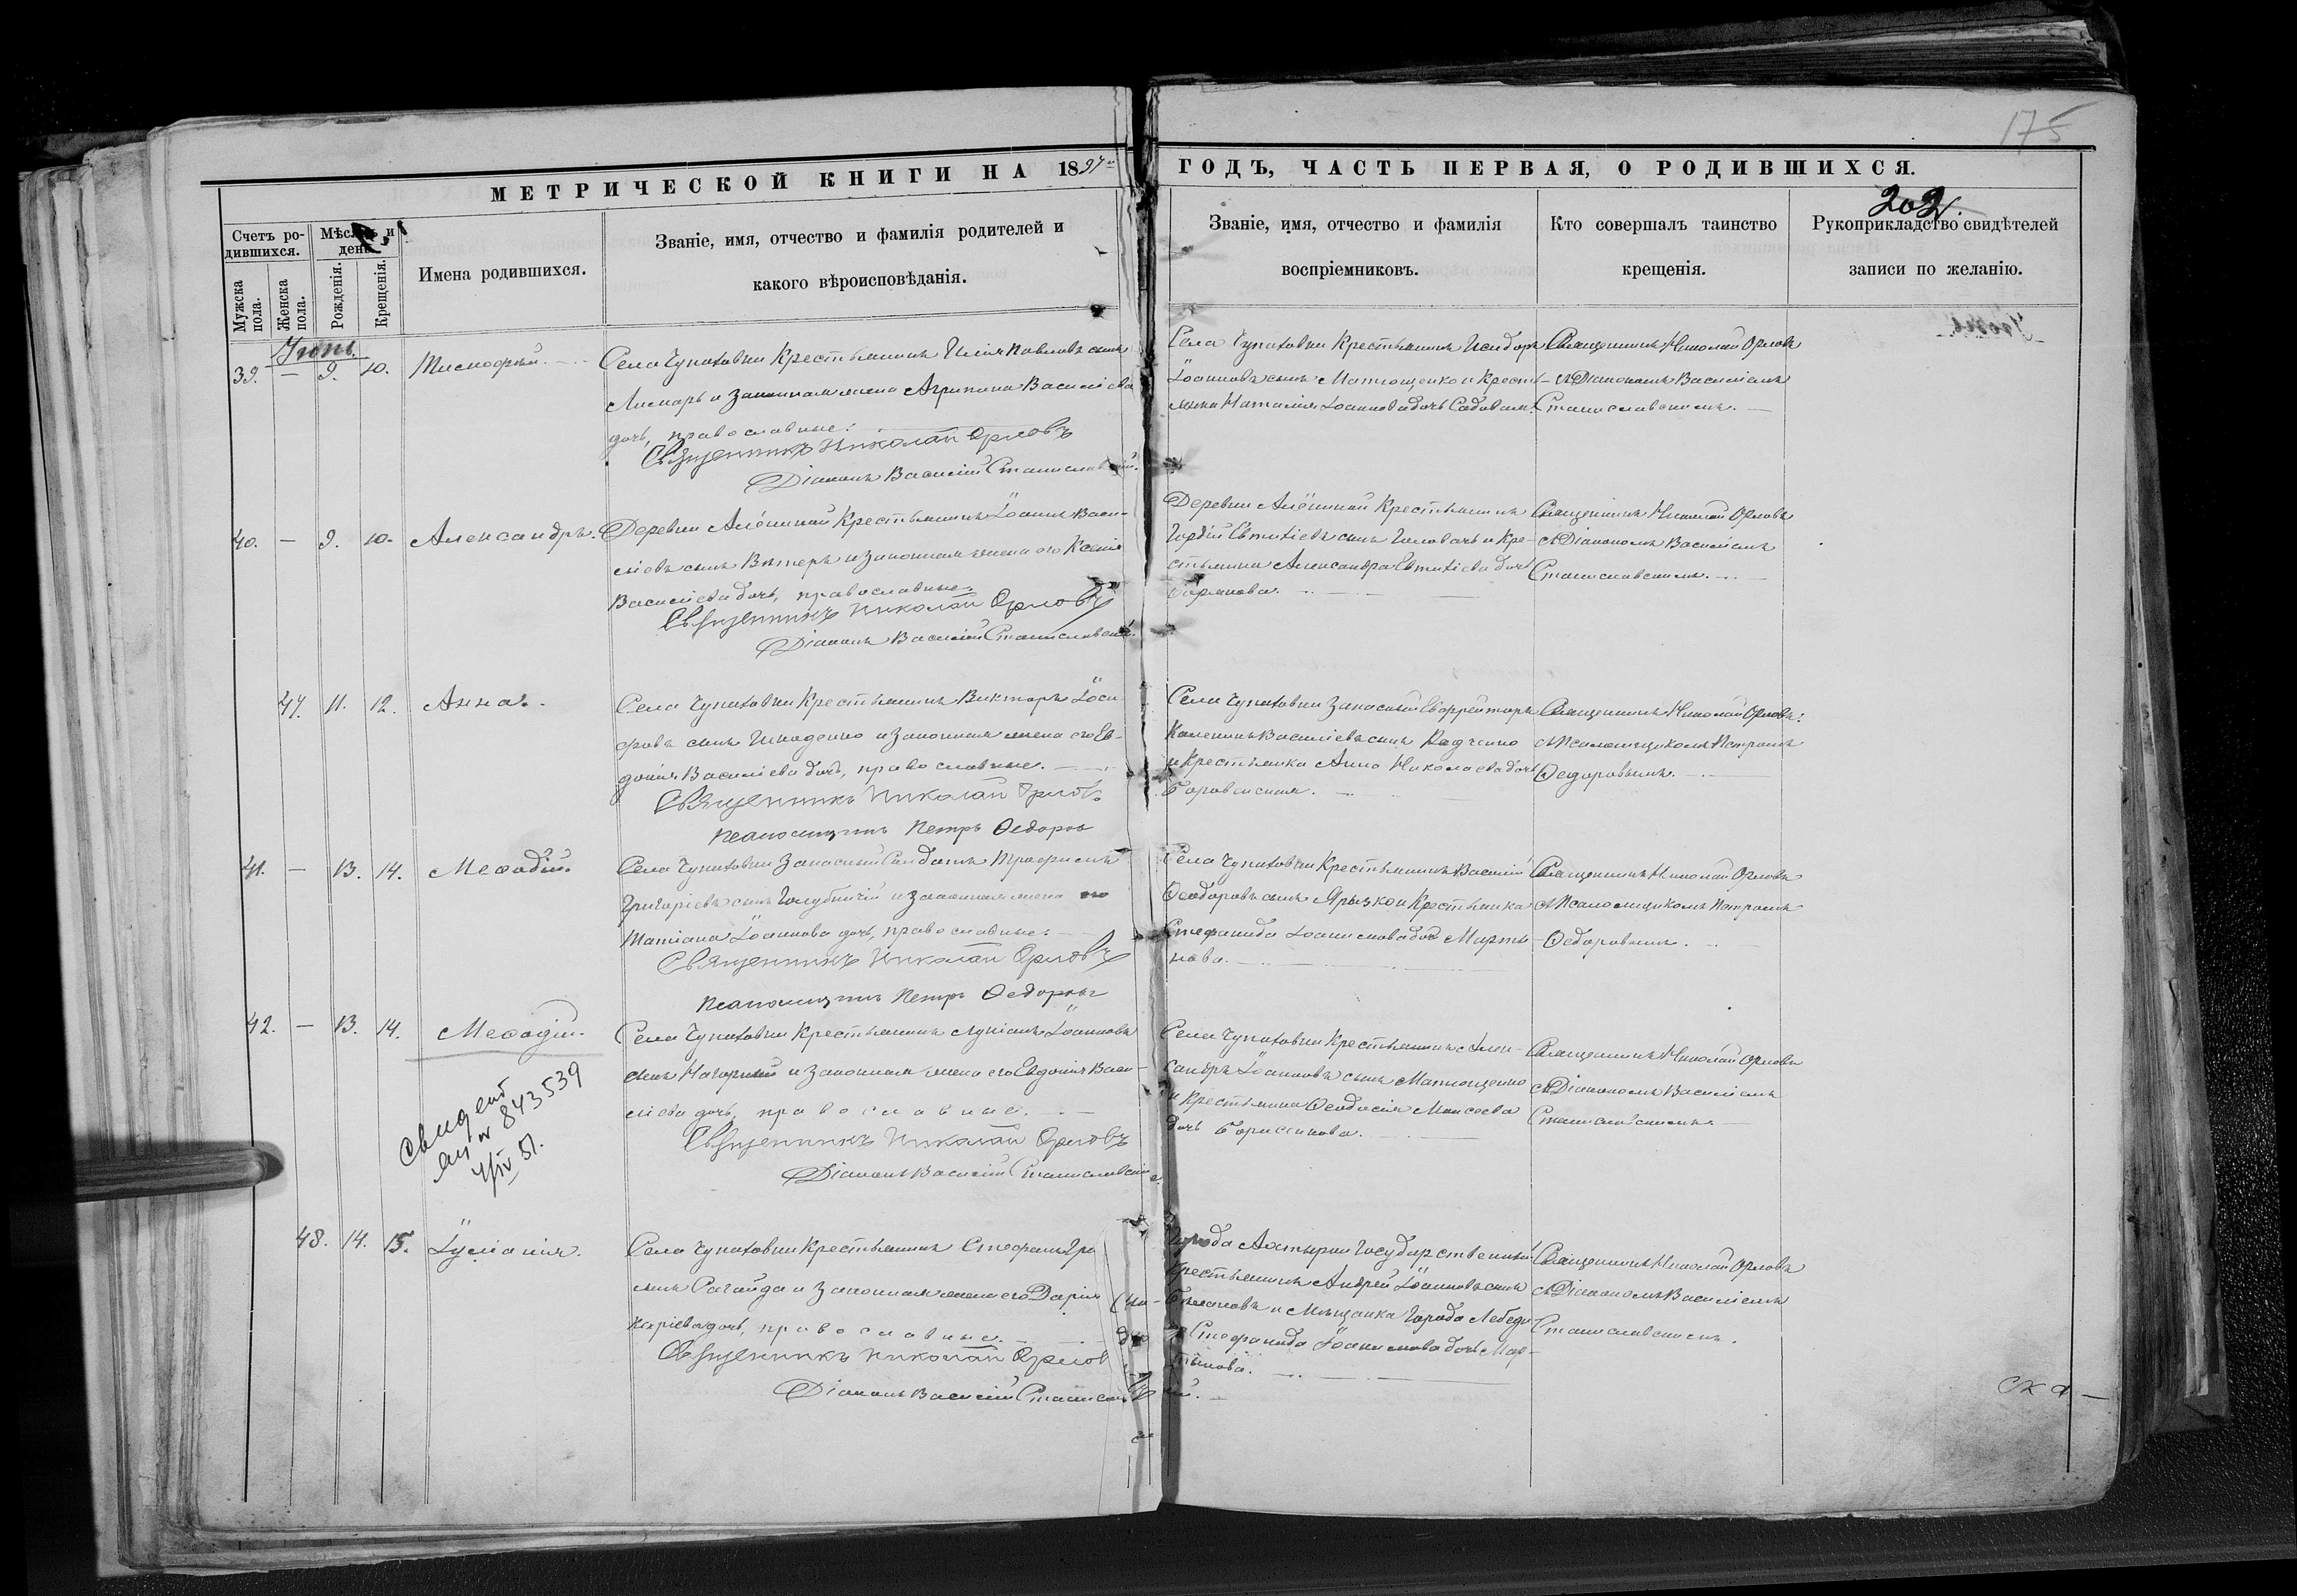 175
МЕТРИЧЕСКОЙ КНИГИ НА 1897 ГОДЪ, ЧАСТЬ ПЕРВАЯ, О РОДИВШИХСЯ.
202.
Счетъ родившихся.
Мужска пола.
Женска пола.
Мѣсяцъ и день
Рожденія.
Крещенія.
Имена родившихся.
Званіе, имя, отчество и фамилія родителей и
какого вѣроисповѣданія.
Званіе, имя, отчество и фамилія
воспріемниковъ.
Кто совершалъ таинство
крещенія.
Рукоприкладство свидѣтелей
записи по желанію.
39. — 9. 10. Тимофей.
Села Чупаховки Крестьянинъ Илія Павловъ сынъ
и законная жена Агрипина Василіева
дочь, православные.
Священникъ Николай Орловъ
Діаконъ Василій Станиславскій.
Села Чупаховки Крестьянинъ Исидоръ
Іоанновъ сынъ Матющенко и Кресть-
янка Наталія Іоаннова дочь
Священникъ Николай Орловъ
съ Діакономъ Василіемъ
Станиславскимъ.
40. — 9. 10. Александръ.
Деревни Крестьянинъ Іоаннъ Васи-
ліевъ сынъ и законная жена его Ксенія
Василіева дочь, православные.
Священникъ Николай Орловъ
Діаконъ Василій Станиславскій.
Деревни Крестьянинъ
Гордій Евтихіевъ сынъ Головачъ и Кре-
стьянка Александра Евтихіева дочь
Священникъ Николай Орловъ
съ Діакономъ Василіемъ
Станиславскимъ.
47. 11. 12. Анна.
Села Чупаховки Крестьянинъ Викторъ
сынъ и законная жена его Ев-
докія Василіева дочь, православные.
Священникъ Николай Орловъ
Псаломщикъ Петръ Ѳедоровъ
Села Чупаховки запасный Ефрейторъ
Василіевъ сынъ Радченко
и Крестьянка Анна Николаева дочь
Боровенская.
Священникъ Николай Орловъ
съ Псаломщикомъ Петромъ
Ѳедоровымъ.
41. — 13. 14. Меѳодій.
Села Чупаховки запасный Солдатъ Трофимъ
Григоріевъ сынъ Голубничій и законная жена его
Татіана Іоаннова дочь, православные.
Священникъ Николай Орловъ
Псаломщикъ Петръ Ѳедоровъ
Села Чупаховки Крестьянинъ Василій
Ѳеодоровъ сынъ Ярызко и Крестьянка
Стефанида дочь Марты-
нова.
Священникъ Николай Орловъ
съ Псаломщикомъ Петромъ
Ѳедоровымъ.
42. — 13. 14. Меѳодій.
Села Чупаховки Крестьянинъ Лукіанъ Іоанновъ
сынъ Нагорный и законная жена его Евдокія Васи-
ліева дочь, православные.
Священникъ Николай Орловъ
Діаконъ Василій Станиславскій
Села Чупаховки Крестьянинъ Алек-
сандръ Іоанновъ сынъ Матющенко
и Крестьянка Ѳеодосія Моисеева
дочь Борисенкова.
Священникъ Николай Орловъ
съ Діакономъ Василіемъ
Станиславскимъ.
843539
4/IV 51.
48. 14. 15. Іуліанія.
Села Чупаховки Крестьянинъ Стефанъ
сынъ Рагайда и законная жена его Дарія
дочь, православные.
Священникъ Николай Орловъ
Діаконъ Василій
Города Ахтырки Государственный
Крестьянинъ Андрей Іоанновъ сынъ
и мѣщанка города Лебеди-
на Стефанида дочь Мар-
тынова.
Священникъ Николай Орловъ
съ Діакономъ Василіемъ
Станиславскимъ.